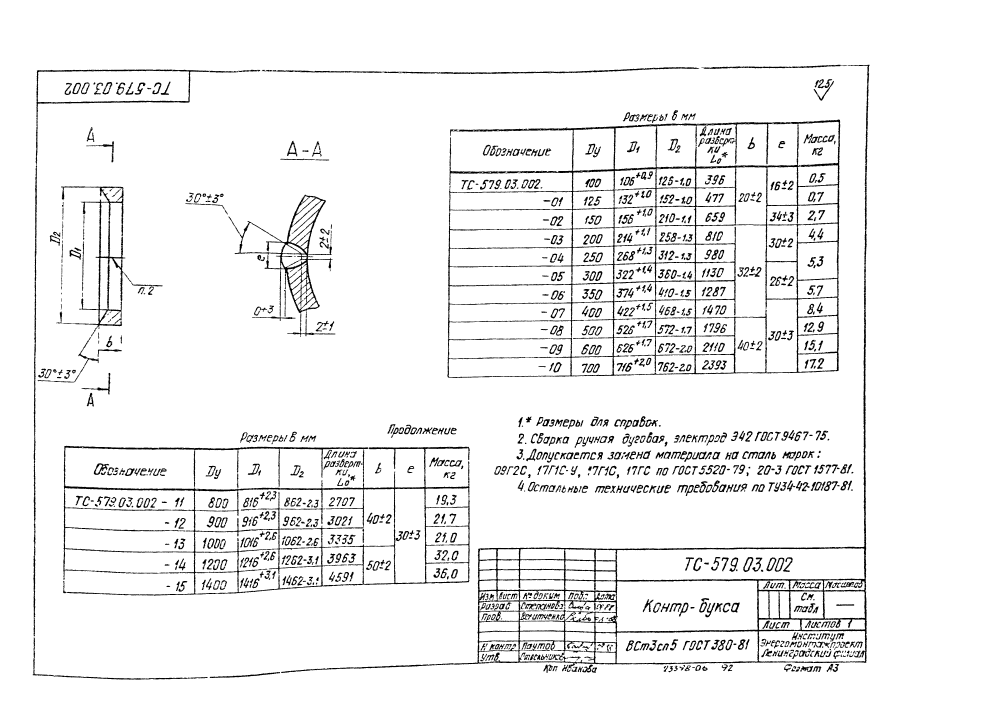 ТС-579.03.002
12.5
А
А-А
30°±3°
2±2
е
0+3
2±1
D2
D1
п.2
b
30°±3°
А
Размеры в мм
Обозначение Dу D1 D2 Длина разверт-ки L0* b е Масса, кг
ТС-579.03.002. 100 106+0,9 126-1,0 396 20±2 16±2 0,5
-01 125 132+1,0 152-1,0 477 0,7
-02 150 156+1,0 210-1,1 659 32±2 34±3 2,7
-03 200 214+1,1 258-1,3 810 30±2 4,4
-04 250 268+1,3 312-1,3 980 5,3
-05 300 322+1,4 360-1,4 1130 26±2
-06 350 374+1,4 410-1,5 1287 5,7
-07 400 422+1,5 468-1,5 1470 30±3 8,4
-08 500 526+1,7 572-1,7 1796 40±2 12,9
-09 600 626+1,7 672-2,0 2110 15,1
-10 700 716+2,0 762-2,0 2393 17,2
Размеры в мм Продолжение
Обозначение Dу D1 D2 Длина разверт-ки, L0* b е Масса, кг
ТС-579.03.002 - 11 800 816+2,3 862-2,3 2707 40±2 30±3 19,3
- 12 900 916+2,3 962-2,3 3021 21,7
- 13 1000 1016+2,6 1062-2,6 3335 21,0
- 14 1200 1216+2,6 1262-3,1 3963 50±2 32,0
- 15 1400 1416+3,1 1462-3,1 4591 36,0
1.* Размеры для справок.
2. Сварка ручная дуговая, электрод Э42 ГОСТ 9467-75.
3. Допускается замена материала на сталь марок:
09Г2С, 17Г1С-У, 17Г1С, 17ГС по ГОСТ 5520-79; 20-3 ГОСТ 1577-81.
4. Остальные технические требования по ТУ34-42-10187-81.
ТС-579.03.002
Контр-букса
Лит. Масса Масштаб
См. табл —
Лист Листов 1
Изм Лист № докум Подп. Дата
Разраб Степанова
Пров.
Н контр Паутов
Утв.
ВСт3сп5 ГОСТ 380-81
Институт
Энергомонтажпроект
Ленинградский филиал
Коп Иванова
23378-06 92
Формат А3